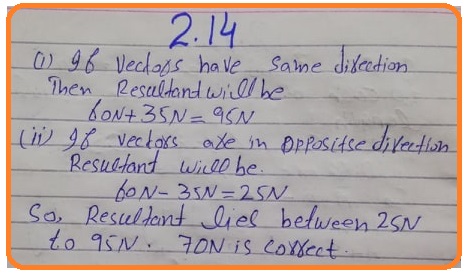 2.14
(i) If vectors have same direction
Then Resultant will be
60N+35N=95N
(ii) If vectors are in oppositse direction
Resultant will be.
60N-35N=25N
So, Resultant lies between 25N
to 95N. 70N is correct.